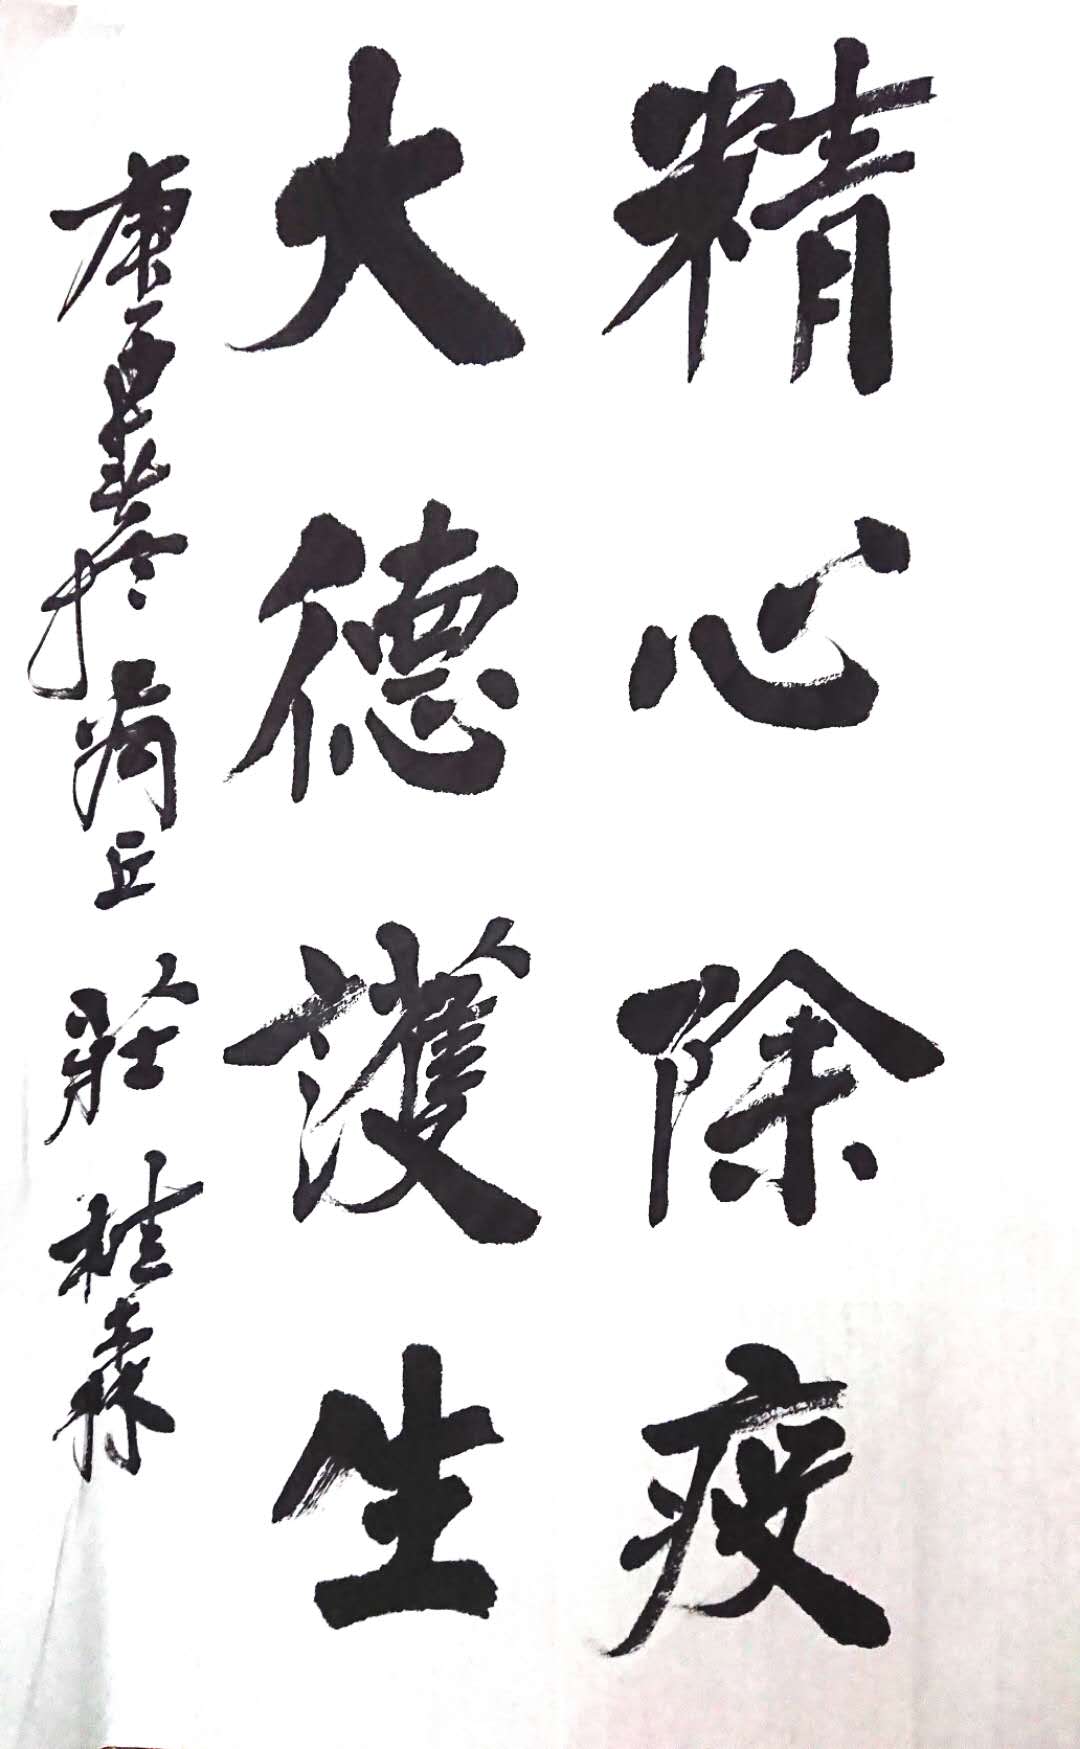 精心除疫
大德護生
庚子春於商丘莊桂森